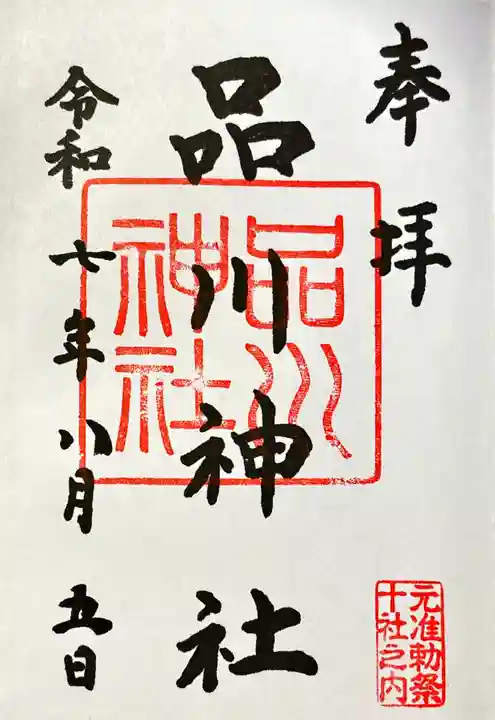 奉拝
品川神社
品川
神社
令和七年八月五日
元准勅祭
十社之内